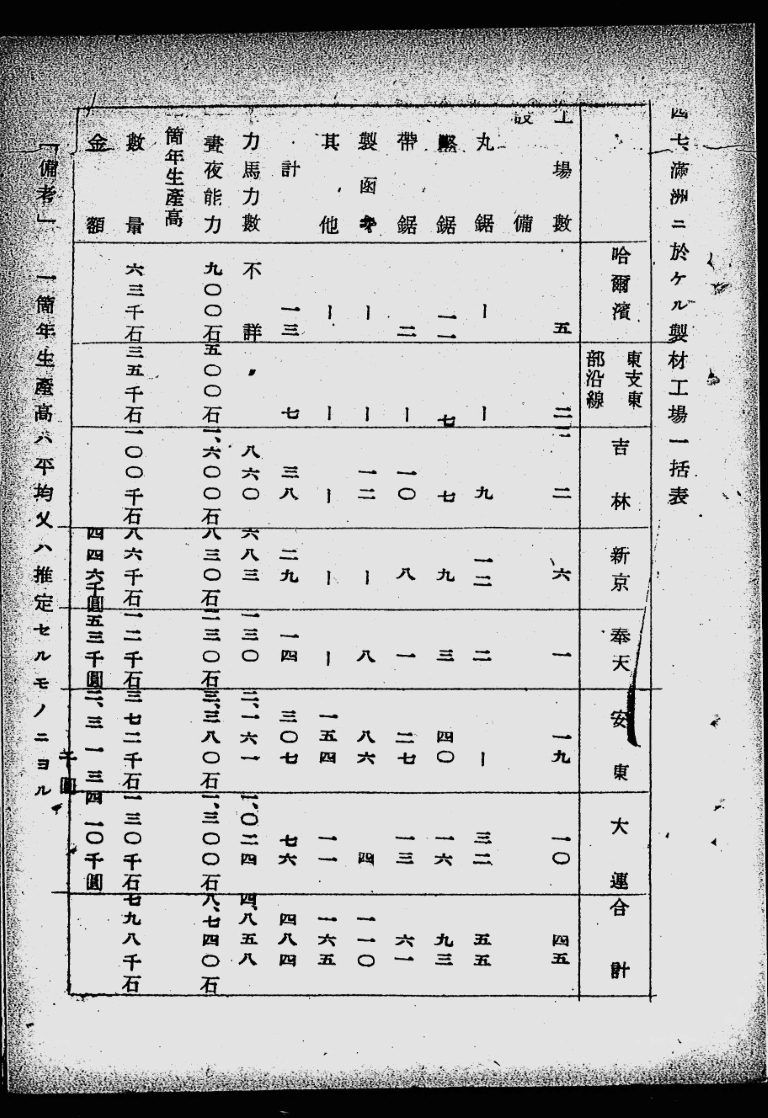 四七、滿洲ニ於ケル製材工場一括表
哈爾濱 東支東部沿線 吉林 新京 奉天 安東 大連 合計
工場數 五 二 二 六 一 一九 一〇 四五
設備
丸鋸 ー ー 九 一二 二 ー 三二 五五
竪鋸 一一 七 七 九 三 四〇 一六 九三
帶鋸 二 ー 一〇 八 一 二七 一三 六一
製函 ー ー 一二 ー 八 八六 四 一一〇
其他 ー ー ー ー ー 一五四 一一 一六五
計 一三 七 三八 二九 一四 三〇七 七六 四八四
力馬力數 不詳 〃 八六〇 六八三 一三〇 二、一六一 一、〇二四 四、八五八
晝夜能力 九〇〇石 五〇〇石 一、六〇〇石 八三〇石 二三〇石 三、三八〇石 一、三〇〇石 八、七四〇石
箇年生產高
數量 六三千石 三五千石 一〇〇千石 八六千石 一二千石 三七二千石 一三〇千石 七九八千石
金額 四四六千圓 五三千圓 二、三一三千圓 四一〇千圓
「備考」 一箇年生產高ハ平均又ハ推定セルモノニヨル